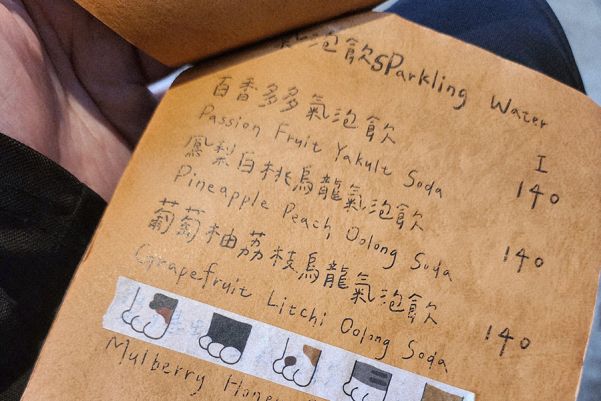 泡飲 SParkling Water
I
百香多多氣泡飲
Passion Fruit Yakult Soda 140
鳳梨白桃烏龍氣泡飲
Pineapple Peach Oolong Soda 140
葡萄柚荔枝烏龍氣泡飲
Grapefruit Litchi Oolong Soda 140
Mulberry Hone